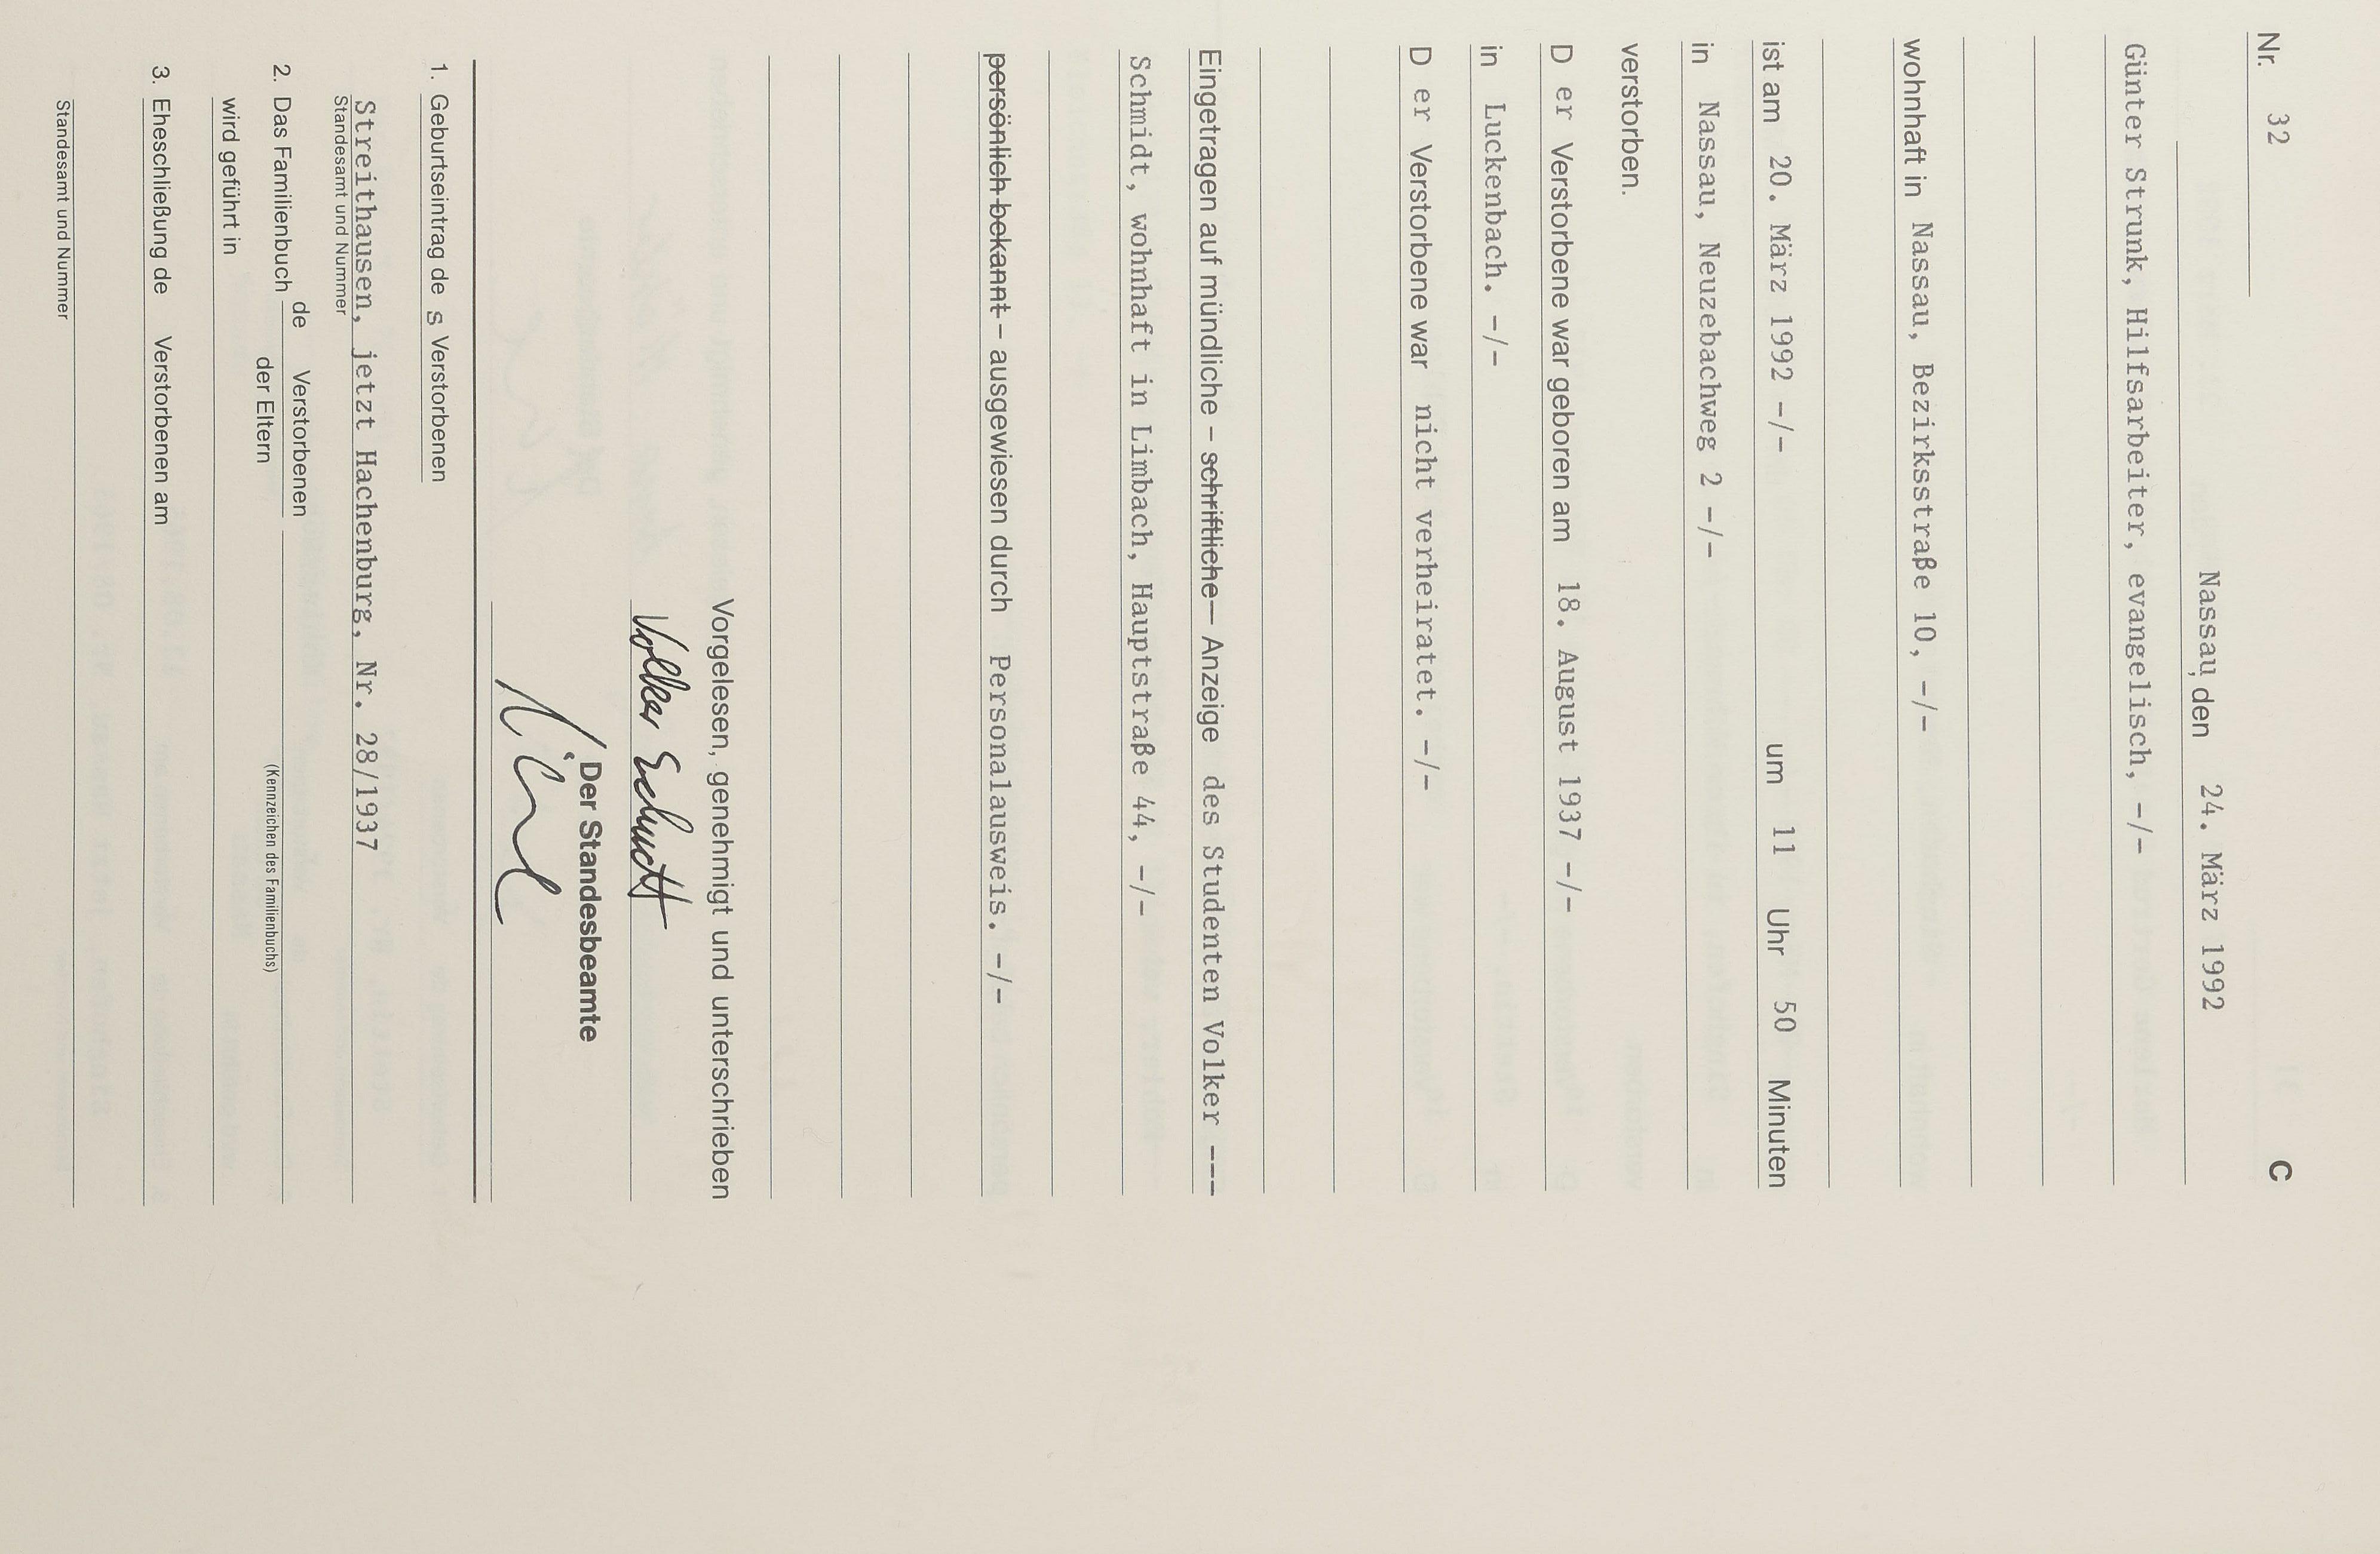 Nr. 32 C
Nassau, den 24. März 1992
Günter Strunk, Hilfsarbeiter, evangelisch, -/-
wohnhaft in Nassau, Bezirksstraße 10, -/-
ist am 20. März 1992 -/- um 11 Uhr 50 Minuten
in Nassau, Neuzebachweg 2 -/-
verstorben.
D er Verstorbene war geboren am 18. August 1937 -/-
in Luckenbach. -/-
D er Verstorbene war nicht verheiratet. -/-
Eingetragen auf mündliche – schriftliche – Anzeige des Studenten Volker ---
Schmidt, wohnhaft in Limbach, Hauptstraße 44, -/-
persönlich bekannt – ausgewiesen durch Personalausweis. -/-
Vorgelesen, genehmigt und unterschrieben
Volker Schmidt
Der Standesbeamte
1. Geburtseintrag de s Verstorbenen
Streithausen, jetzt Hachenburg, Nr. 28/1937
Standesamt und Nummer
de Verstorbenen
2. Das Familienbuch
der Eltern
(Kennzeichen des Familienbuchs)
wird geführt in
3. Eheschließung de Verstorbenen am
Standesamt und Nummer